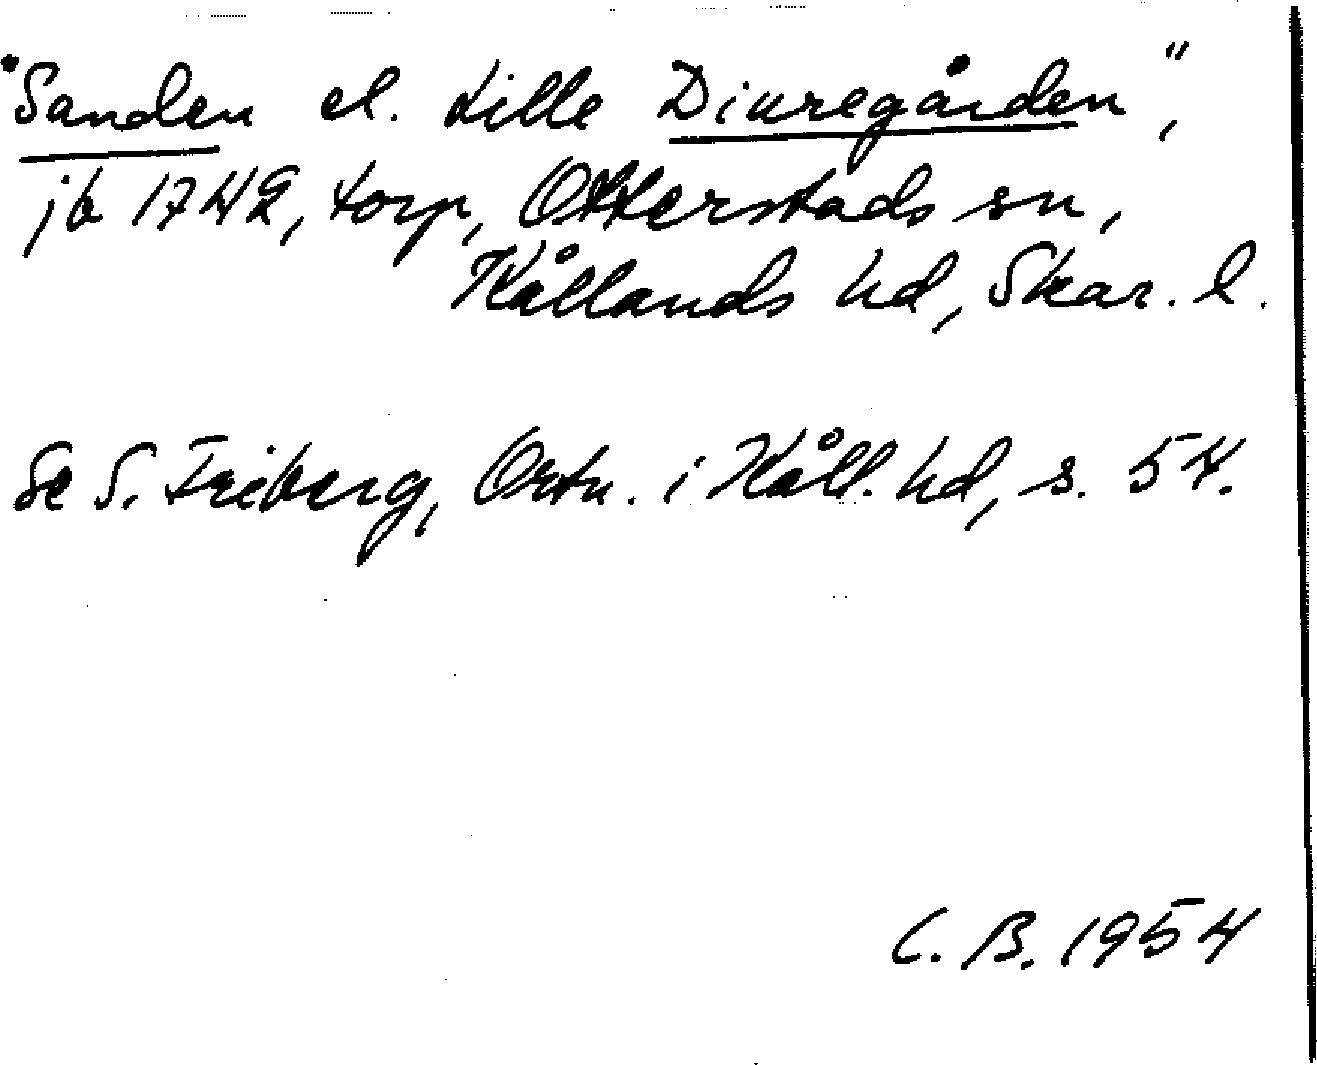 "Sanden el. Lille Diuregården",
jb 1742, torp, Otterstads sn,
Kållands hd, Skar. l.
Se S. Friberg, Ortn. i Kåll. hd, s. 54.
C. B. 1954